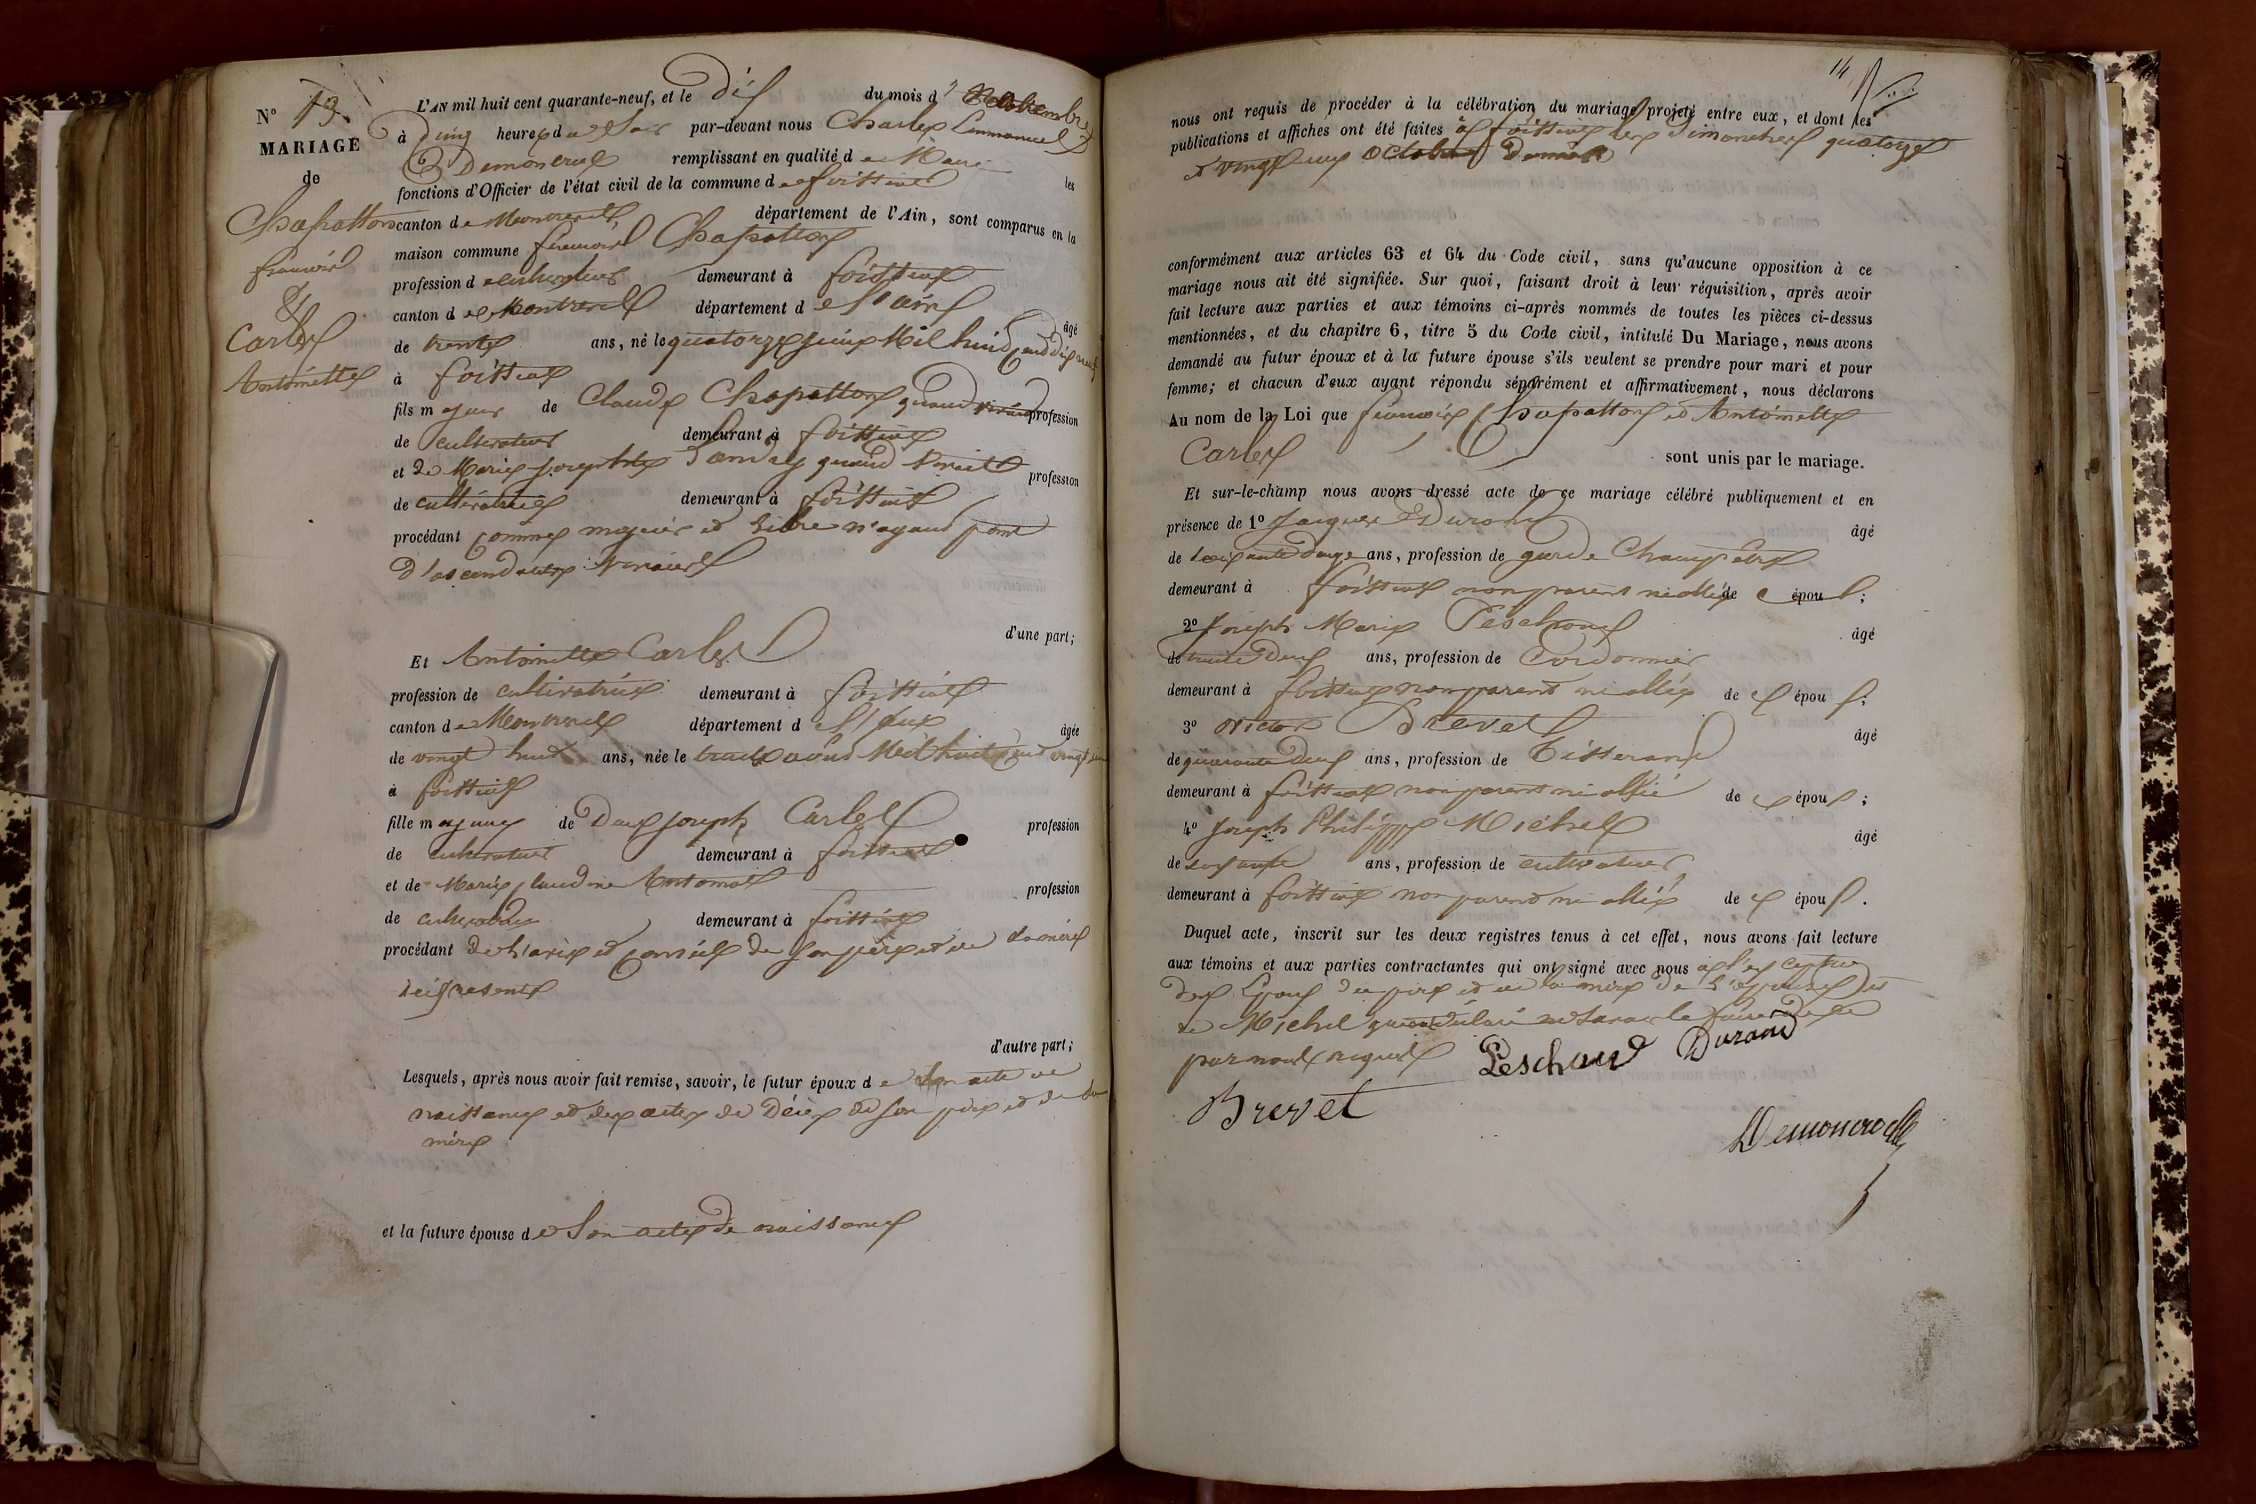 N° 13.
MARIAGE
de
Chapatton
François
&
Carlet
Antoinette
L'AN mil huit cent quarante-neuf, et le dix du mois d
à Cinq heures du Soir par-devant nous Charles Emmanuel
Demoncrel remplissant en qualité de Maire les
fonctions d'Officier de l'état civil de la commune de foissiat
canton de Montrevel, département de l'Ain, sont comparus en la
maison commune françois Chapatton
profession de cultivateur demeurant à foissiat
canton de Montrevel département de l'ain âgé
de trente ans, né le quatorze juin Mil huit cent dix neuf
à foissiat
fils majeur de Claude Chapatton quand vivait profession
de Cultivateur demeurant à foissiat
et de Marie Josephte quand vivait profession
de cultivatrice demeurant à foissiat
procédant comme majeur et libre n'ayant point
d'ascendants
d'une part;
Et Antoinette Carlet
profession de cultivatrice demeurant à foissiat
canton de Montrevel département de l'ain âgée
de vingt huit ans, née le août Mil huit cent vingt un
à foissiat
fille majeure de Joseph Carlet profession
de cultivateur demeurant à foissiat
et de Marie Claudine profession
de cultivatrice demeurant à foissiat
procédant de l'avis et conseil de son père et de sa mère
ici présents
d'autre part;
Lesquels, après nous avoir fait remise, savoir, le futur époux de son acte de
naissance et des actes de Décès de son père et de sa
mère
et la future épouse de Son acte de naissance
14
nous ont requis de procéder à la célébration du mariage projeté entre eux, et dont les
publications et affiches ont été faites à foissiat les Dimanches quatorze
et vingt un Octobre dernier
conformément aux articles 63 et 64 du Code civil, sans qu'aucune opposition à ce
mariage nous ait été signifiée. Sur quoi, faisant droit à leur réquisition, après avoir
fait lecture aux parties et aux témoins ci-après nommés de toutes les pièces ci-dessus
mentionnées, et du chapitre 6, titre 5 du Code civil, intitulé Du Mariage, nous avons
demandé au futur époux et à la future épouse s'ils veulent se prendre pour mari et pour
femme; et chacun d'eux ayant répondu séparément et affirmativement, nous déclarons
Au nom de la Loi que françois Chapatton et Antoinette
Carlet sont unis par le mariage.
Et sur-le-champ nous avons dressé acte de ce mariage célébré publiquement et en
présence de 1° Jacques Durand âgé
de ans, profession de garde Champêtre
demeurant à foissiat non parent ni allié de époux;
2° Joseph Marie Peschoud âgé
de trente Deux ans, profession de Cordonnier
demeurant à foissiat non parent ni allié de époux;
3° Victor Brevet âgé
de quarante Deux ans, profession de Tisserand
demeurant à foissiat non parent ni allié de époux;
4° Joseph Philippe Michel âgé
de soixante ans, profession de cultivateur
demeurant à foissiat non parent ni allié de époux.
Duquel acte, inscrit sur les deux registres tenus à cet effet, nous avons fait lecture
aux témoins et aux parties contractantes qui ont signé avec nous
des Epoux du père et de la mère de l'épouse et
de Michel qui ont déclaré ne savoir le faire de ce
par nous requis Peschoud Durand
Brevet